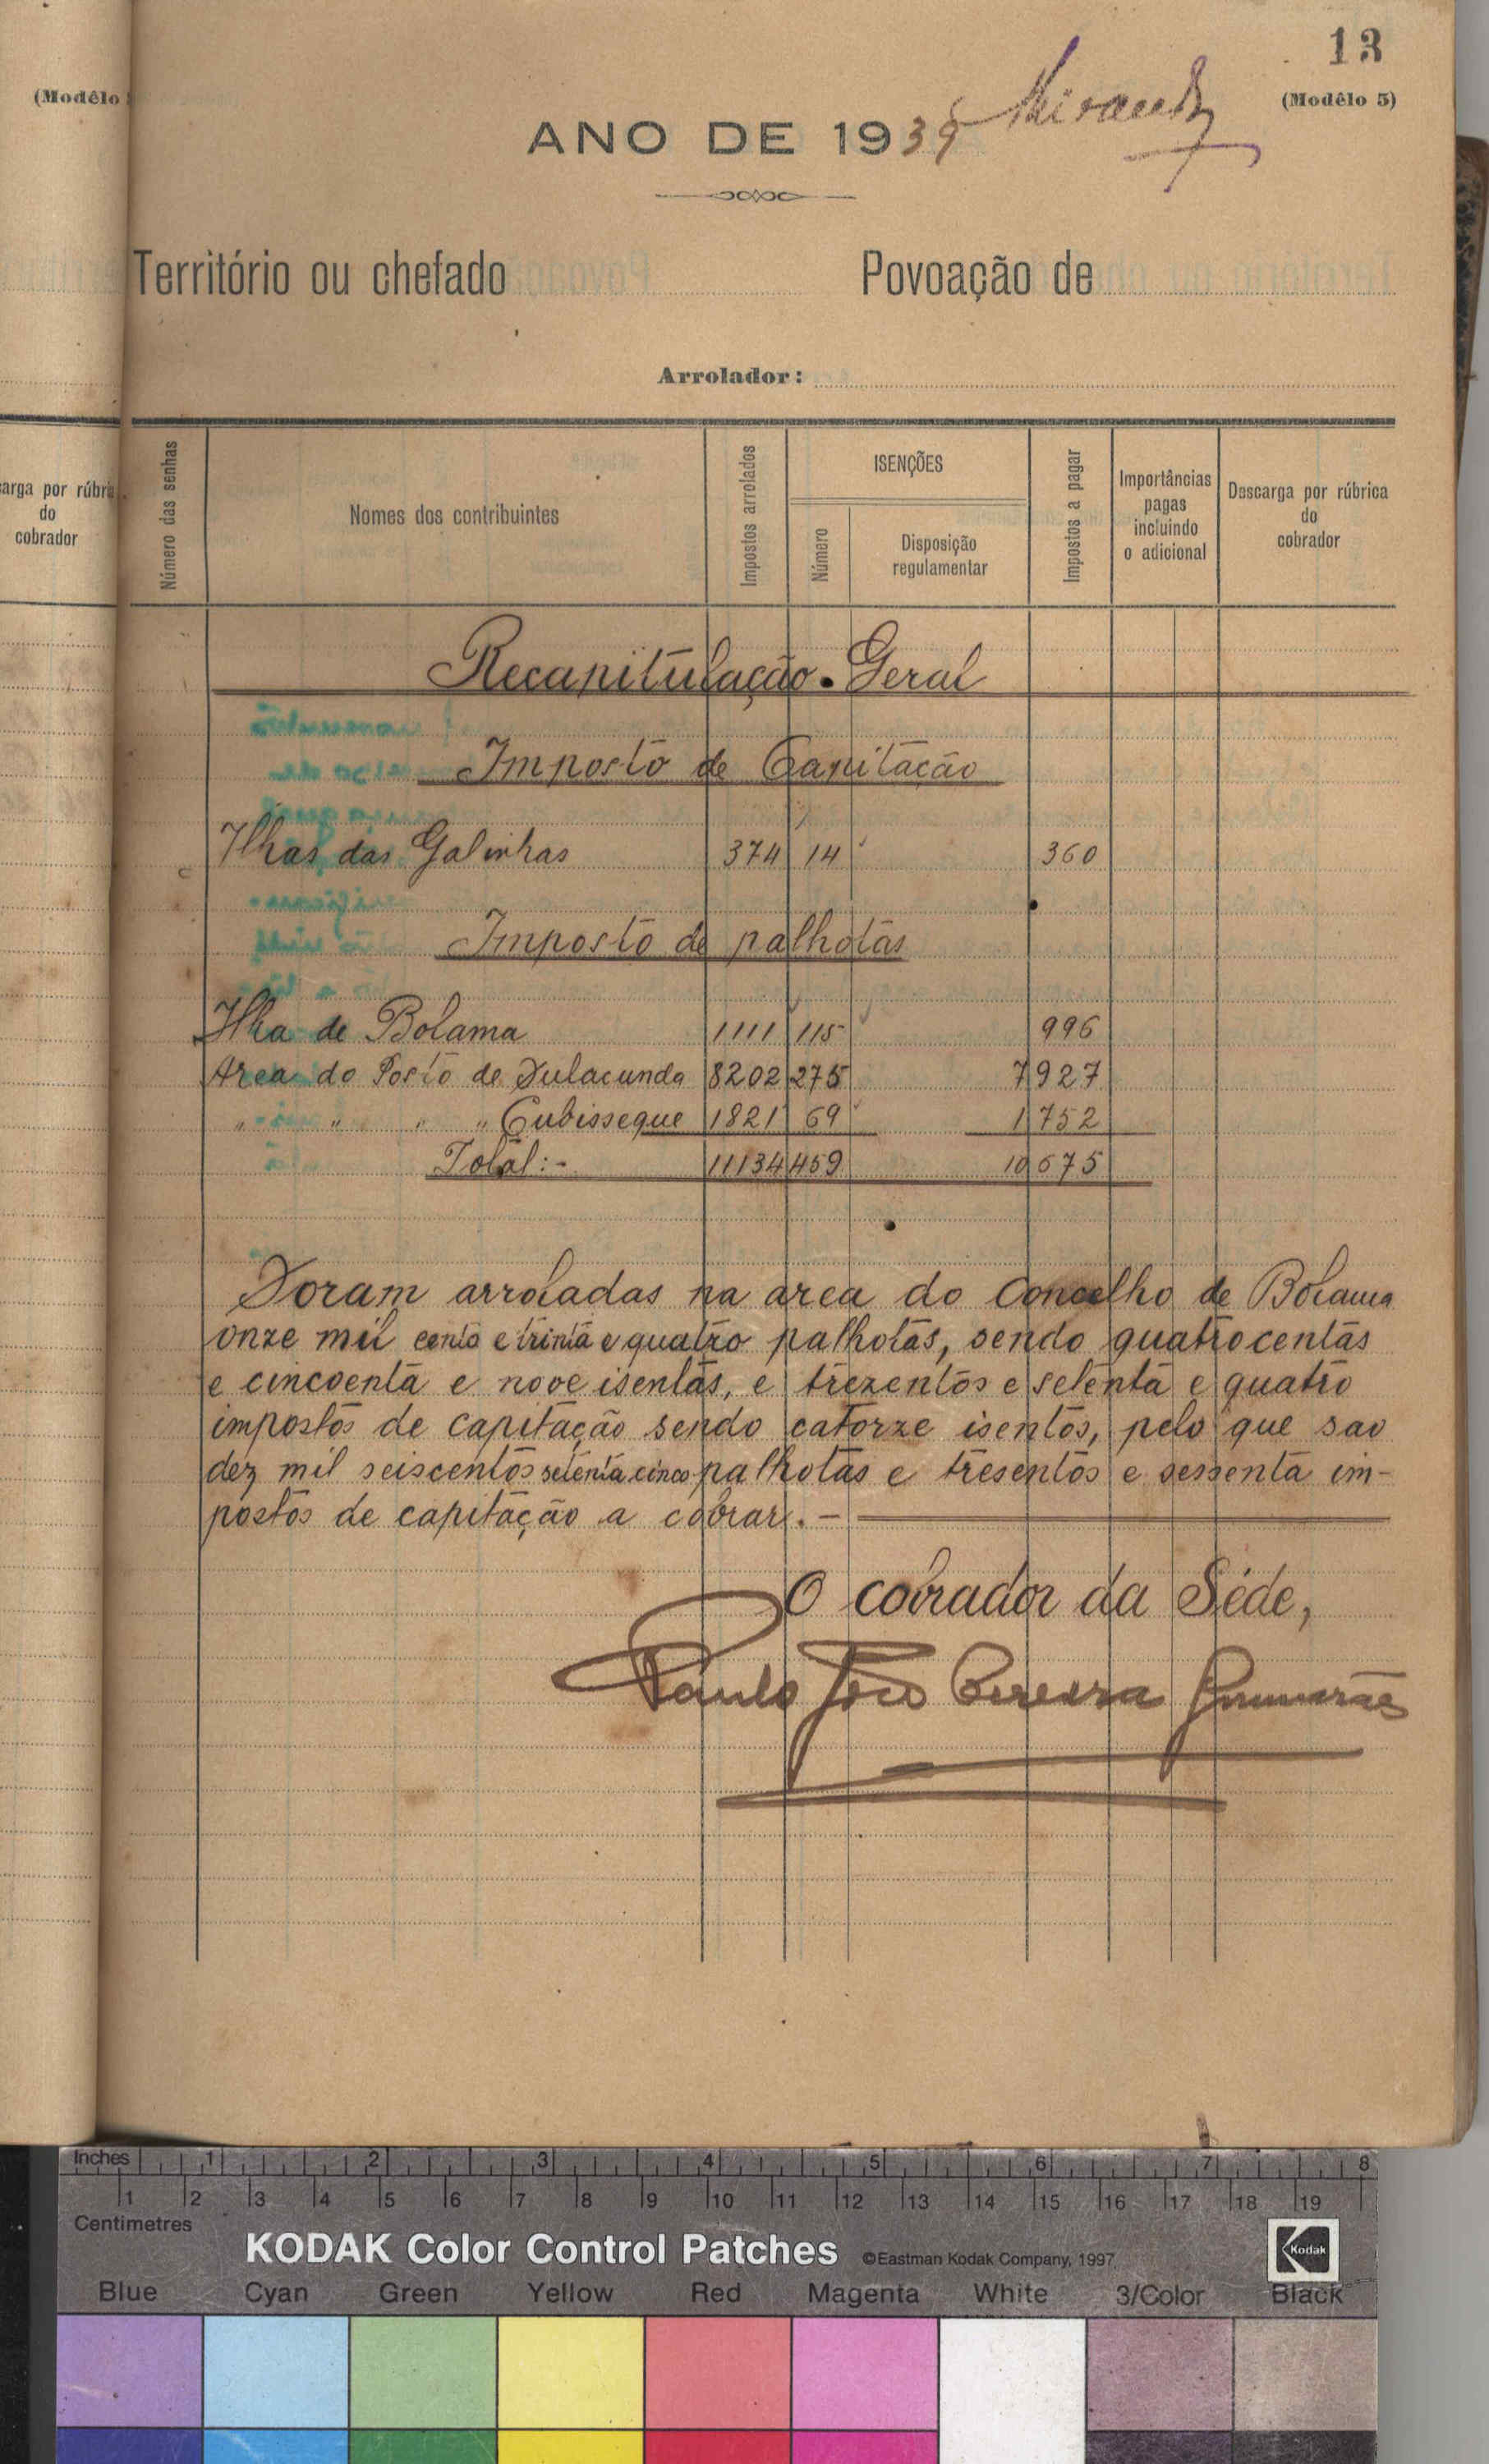 13
(Modêlo
(Modêlo 5)
Miranda
ANO DE 1939
Território ou chefado
Povoação de
Arrolador:
arga por rúbri
do
cobrador
Número das senhas
Nomes dos contribuintes
Impostos arrolados
ISENÇÕES
Número
Disposição
regulamentar
Impostos a pagar
Importâncias
pagas
incluindo
o adicional
Descarga por rúbrica
do
cobrador
Recapitulação Geral
Imposto de Capitação
Ilhas das Galinhas 374 14 360
Imposto de palhotas
Ilha de Bolama 1111 115 996
Area do Posto de Fulacunda 8202 275 7927
" " " " Cubisseque 1821 69 1752
Total:- 11134 459 10675
Foram arroladas na area do Concelho de Bolama
onze mil cento e trinta e quatro palhotas, sendo quatrocentas
e cincoenta e nove isentas, e trezentos e setenta e quatro
impostos de capitação sendo catorze isentos, pelo que sao
dez mil seiscentos setenta cinco palhotas e tresentos e sessenta im-
postos de capitação a cobrar.-
O cobrador da Séde,
Paulo João Pereira Guimarães
Inches 1 2 3 4 5 6 7 8
1 2 3 4 5 6 7 8 9 10 11 12 13 14 15 16 17 18 19
Centimetres
KODAK Color Control Patches ©Eastman Kodak Company, 1997
Kodak
Blue Cyan Green Yellow Red Magenta White 3/Color Black